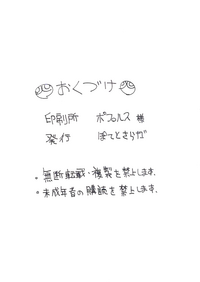 おくづけ
印刷所 ポプルス 様
発行 ぽてとさらだ
・無断転載・複製を禁止します。
・未成年者の購読を禁止します。